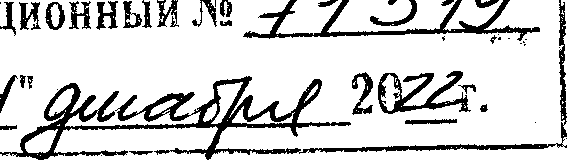 ционный № 71319
" декабря 2022 г.